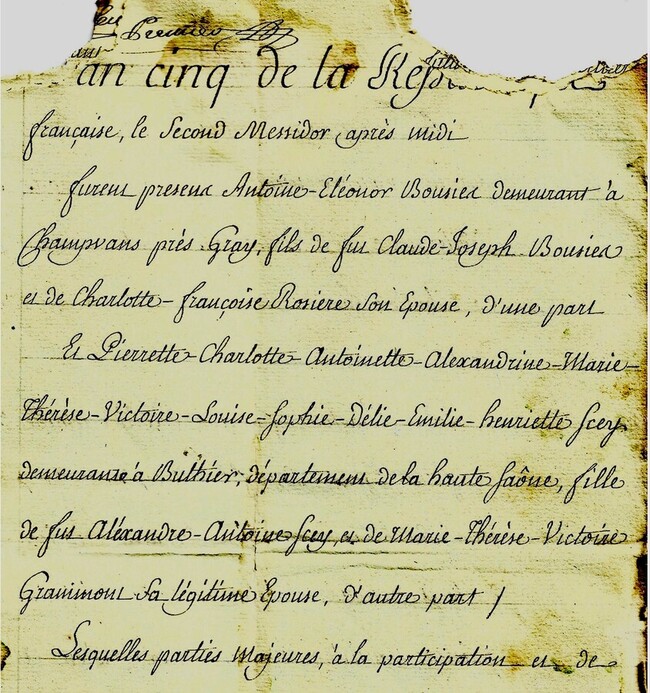 Premier
an cinq de la
française, le Second Messidor après midi
furent presens Antoine-Eléonor Bousies demeurant à
Champvans près Gray, fils de fus Claude-Joseph Bousies
et de Charlotte-françoise Rosiere Son Epouse, d'une part
Et Pierrette-Charlotte-Antoinette-Alexandrine-Marie-
Thérèse-Victoire-Louise-Sophie-Délie-Emilie-henriette Scey
demeurante à Buthier, département de la haute Saône, fille
de fus Aléxandre-Antoine Scey, et de Marie-Thérèse-Victoire
Grammont Sa légitime Epouse, d'autre part /
Lesquelles parties majeures, à la participation et de